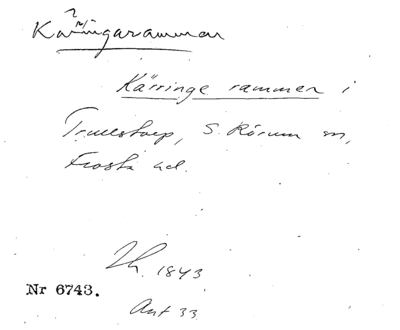 ?
Käringarammen
Kärringe rammen i
Trulstorp, S. Rörum sn,
Frosta hd.
Lh. 1843
Nr 6743.
Ant 33